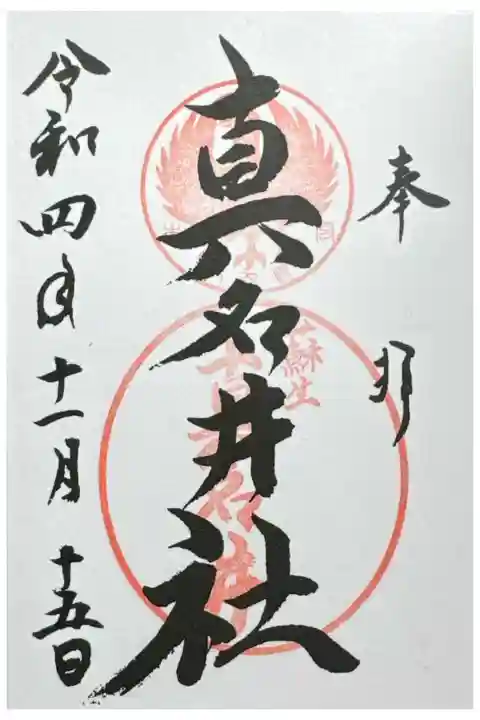 奉拝
真名井社
蘇生
令和四年十一月十五日